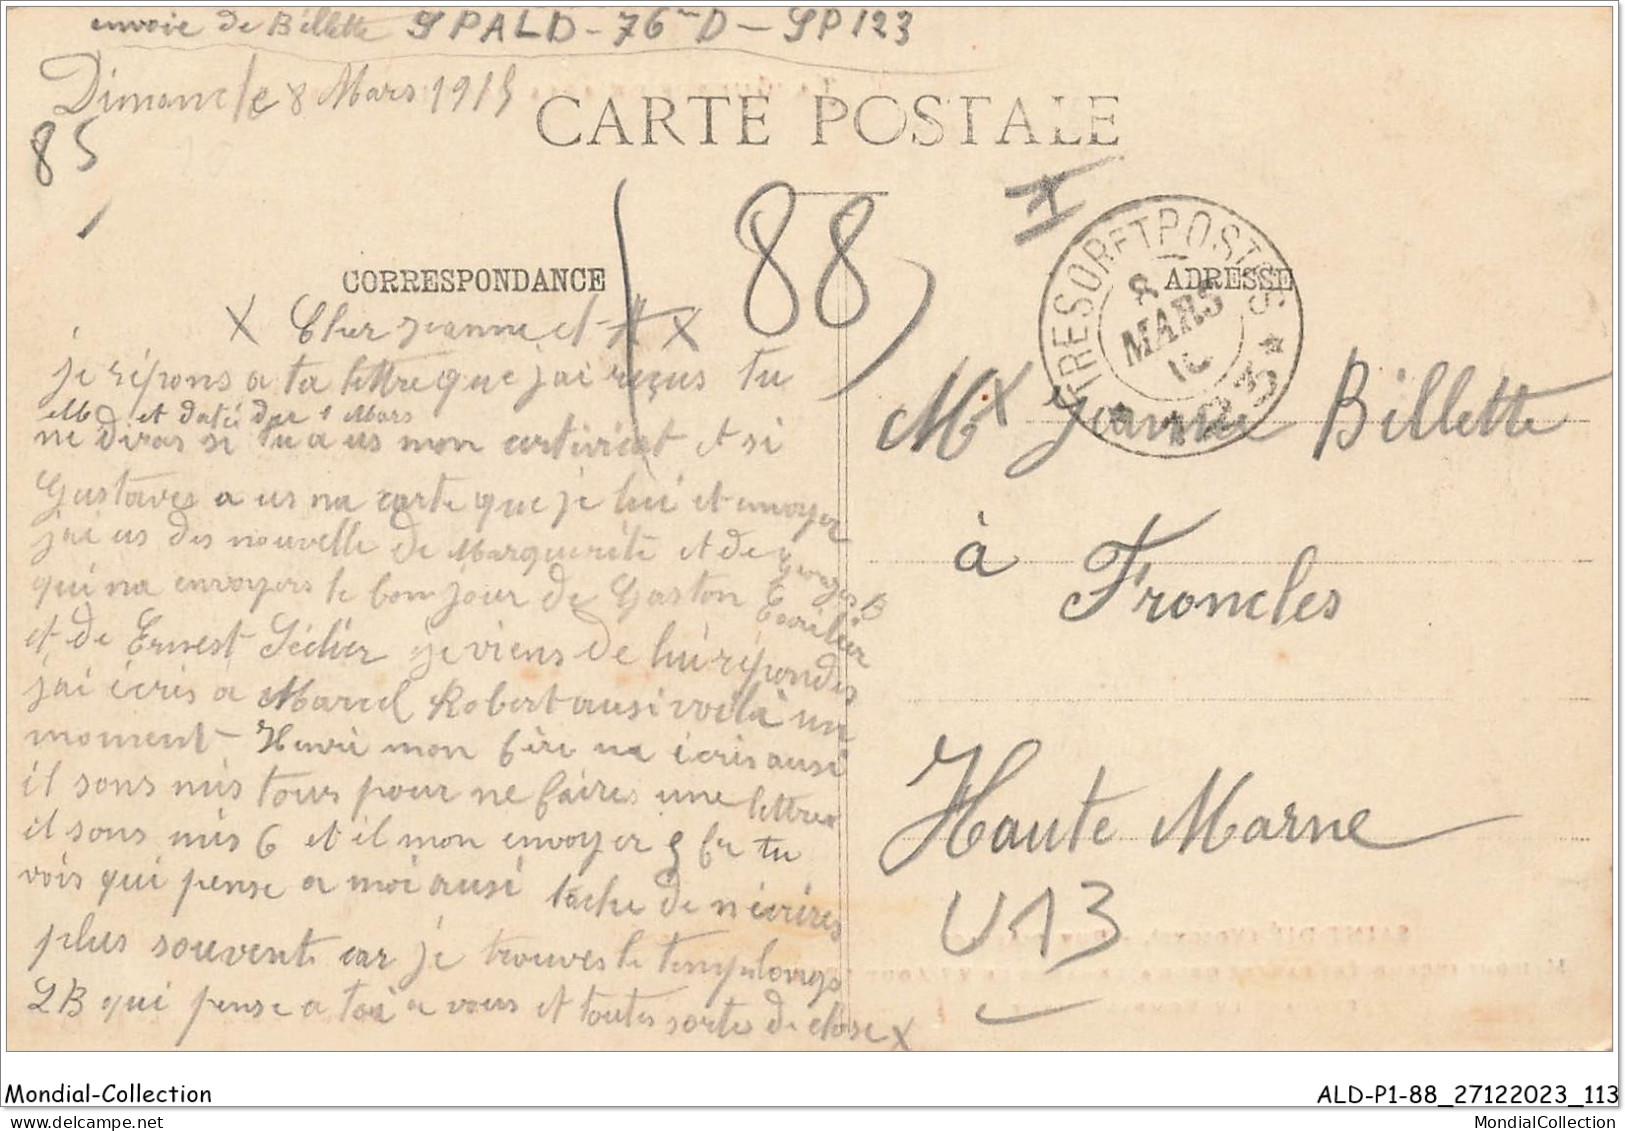 envoie de Billette SPALD-76 D-SP123
Dimanche 8 Mars 1915
85
CARTE POSTALE
88
TRESOR ET POSTES
8
MARS
CORRESPONDANCE
ADRESSE
X Cher Jeanne et X
je répons a ta lettre que j'ai reçus tu
et daté du 1 Mars
ne diras si tu a us mon et si
Gustaves a us na carte que je lui et envoyer
j'ai us des nouvelle de Marguerite et de Georges B
qui na envoyers le bonjour de Gaston
et de Ernest je viens de lui répondes
j'ai écris a Marcel Robert ausi voilà un
moment Henri mon fère na écris ausi
il sons mis tous pour ne faires une lettres
il sons mis 6 et il mon envoyer 5 fr tu
vois qui pense a moi ausi tache de n'écrires
plus souvent car je trouves le temp longs
LB qui pense a toi a vous et toutes sortes de close X
Mx Jeanne Billette
à Froncles
Haute Marne
U13
Mondial-Collection
ALD-P1-88_27122023_113
MondialCollection
www.delcampe.net